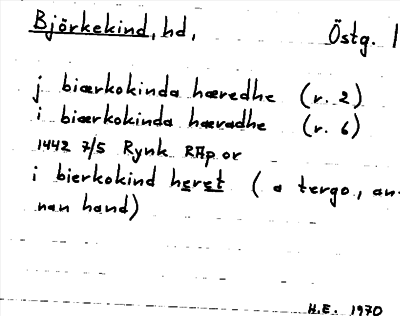 Björkekind, hd, Östg. 1
j biærkokinda hæredhe (r. 2)
i biærkokinda hæradhe (r. 6)
1442 7/5 Rynk RAp or
i bierkokind heret (a tergo, an-
nan hand)
H.E. 1970